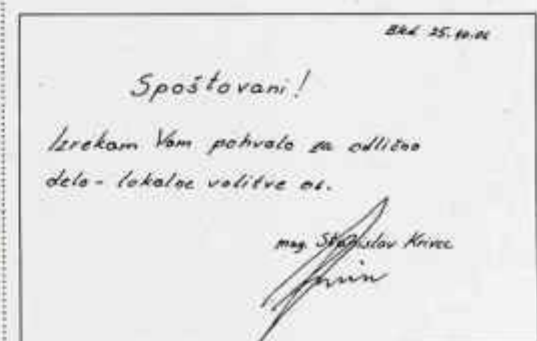 Bled 25.10.06
Spoštovani!
Izrekam Vam pohvalo za odlično
delo - lokalne volitve 06.
mag. Stanislav Krivec